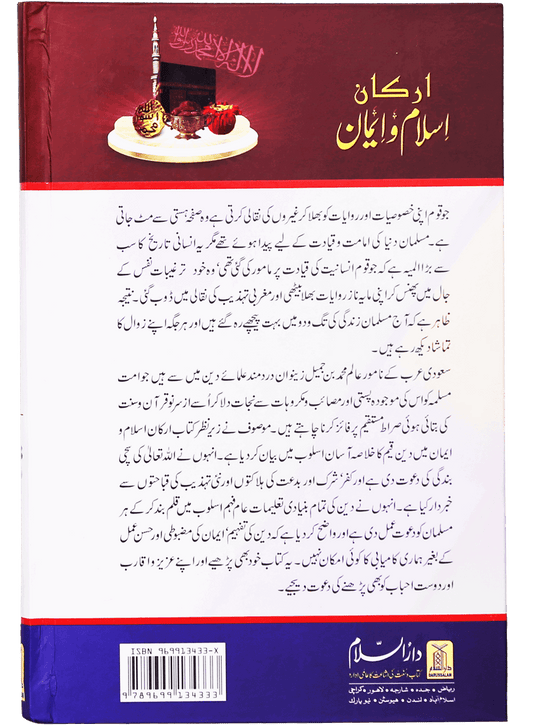 لا اله الا الله محمد رسول الله
ارکان
اسلام و ایمان
جو قوم اپنی خصوصیات اور روایات کو بھلا کر غیروں کی نقالی کرتی ہے وہ صفحہ ہستی سے مٹ جاتی
ہے۔ مسلمان دنیا کی امامت و قیادت کے لیے پیدا ہوئے تھے مگر یہ انسانی تاریخ کا سب
سے بڑا المیہ ہے کہ جو قوم انسانیت کی قیادت پر مامور کی گئی تھی، وہ خود ترغیبات نفس کے
جال میں پھنس کر اپنی مایہ ناز روایات بھلا بیٹھی اور مغربی تہذیب کی نقالی میں ڈوب گئی۔ نتیجہ
ظاہر ہے کہ آج مسلمان زندگی کی تگ و دو میں بہت پیچھے رہ گئے ہیں اور ہر جگہ اپنے زوال کا
تماشا دیکھ رہے ہیں۔
سعودی عرب کے نامور عالم محمد بن جمیل زینو ان دردمند علمائے دین میں سے ہیں جو امت
مسلمہ کو اس کی موجودہ پستی اور مصائب و مکروہات سے نجات دلا کر اُسے از سرِ نو قرآن و سنت
کی بتائی ہوئی صراط مستقیم پر فائز کرنا چاہتے ہیں۔ موصوف نے زیر نظر کتاب ارکان اسلام و
ایمان میں دین قیم کا خلاصہ آسان اسلوب میں بیان کر دیا ہے۔ انہوں نے اللہ تعالیٰ کی سچی
بندگی کی دعوت دی ہے اور کفر، شرک اور بدعت کی ہلاکتوں اور نئی تہذیب کی قباحتوں سے
خبردار کیا ہے۔ انہوں نے دین کی تمام بنیادی تعلیمات عام فہم اسلوب میں قلم بند کر کے ہر
مسلمان کو دعوت عمل دی ہے اور واضح کر دیا ہے کہ دین کی تفہیم، ایمان کی مضبوطی اور حسن عمل
کے بغیر ہماری کامیابی کا کوئی امکان نہیں۔ یہ کتاب خود بھی پڑھیے اور اپنے عزیز و اقارب
اور دوست احباب کو بھی پڑھنے کی دعوت دیجیے۔
ISBN 969913433-X
9 789699 134333
دارالسلام
کتاب و سنت کی اشاعت کا عالمی ادارہ
دارالسلام
DARUSSALAM
ریاض • جدہ • شارجہ • لاہور • کراچی
اسلام آباد • لندن • ہیوسٹن • نیو یارک